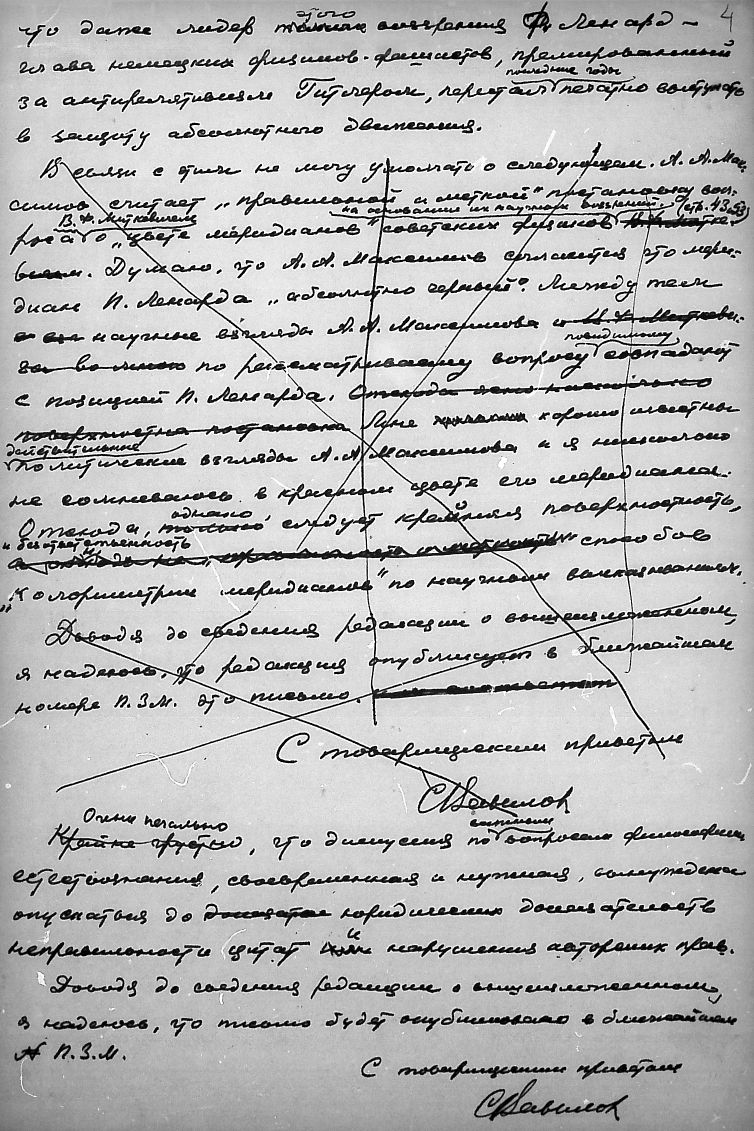 4
что даже лидер этого воззрения Ф. Ленард —
глава немецких физиков-фашистов, премированный
за антирелятивизм Гитлером, перестал последние годы печатно выступать
в защиту абсолютного движения.
В связи с этим не могу умолчать о следующем. А. А. Мак-
симов считает „правильной и меткой" постановку воп-
роса В. Ф. Миткевичем о „цвете меридианов" советских физиков на основании их научных воззрений. (стр. 43, 53)
Думаю, что А. А. Максимов согласится что мери-
диан Ф. Ленарда „абсолютно черный". Между тем
научные взгляды А. А. Максимова и В. Ф. Миткеви-
по рассматриваему вопросу повидимому совпадают
с позицией Ф. Ленарда. Отсюда ясно насколько
поверхностна постановка Мне хорошо известны
действительные политические взгляды А. А. Максимова и я нисколько
не сомневаюсь в красном цвете его меридиана.
Отсюда, однако следует крайняя поверхностность,
и безответственность способов
„Колориметрии меридианов" по научным высказываниям.
Доводя до сведения редакции о вышеизложенном,
я надеюсь, что редакция опубликует в ближайшем
номере П.З.М. это письмо.
С товарищеским приветом
С Вавилов
Очень печально
Крайне грустно, что дискуссия по вопросам философии
естествознания, своевременная и нужная, вынуждена
опускаться до юридических доказательств
неправильности цитат и нарушения авторских прав.
Доводя до сведения редакции о вышеизложенном,
я надеюсь, что письмо будет опубликовано в ближайшем
№ П.З.М.
С товарищеским приветом
С Вавилов